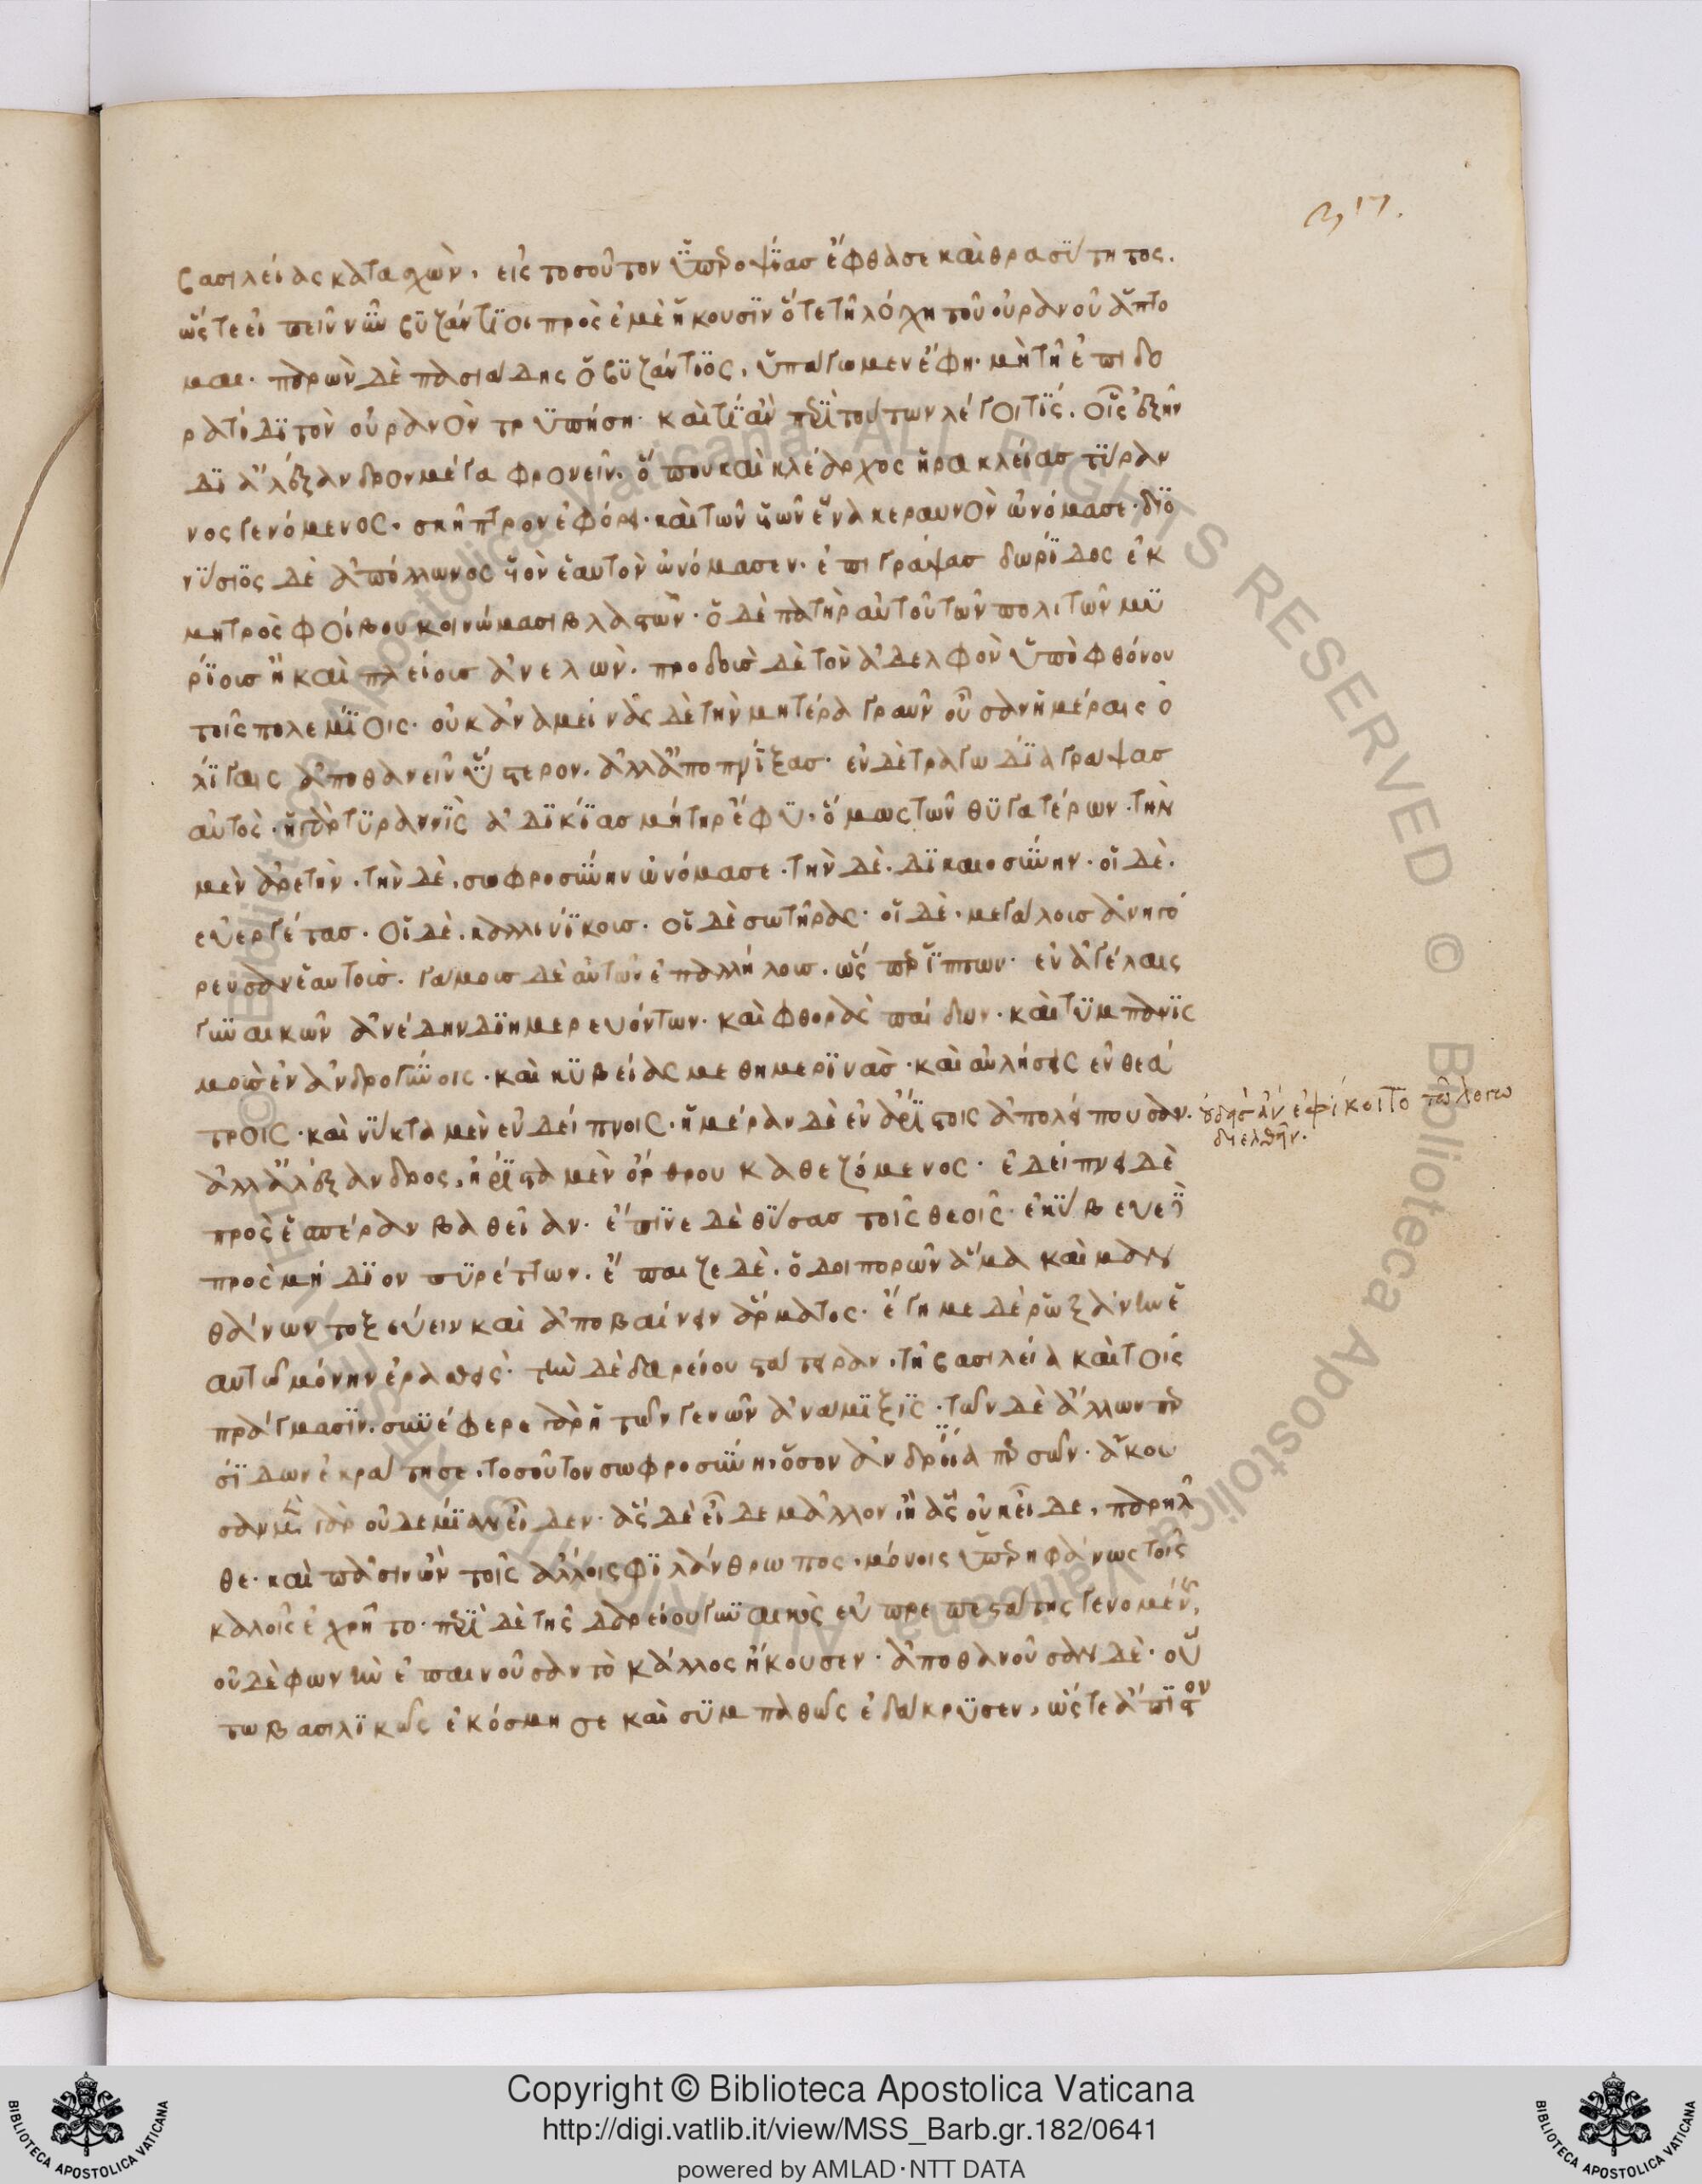 317.
βασιλείας κατασχὼν, εἰς τοσοῦτον ὑπεροψίας ἔφθασε καὶ θρασύτητος.
ὥστε εἰπεῖν νῦν βυζάντιοι πρὸς ἐμὲ ἥκουσιν ὅτε τῇ λόγχῃ τοῦ οὐρανοῦ ἅπτο
μαι. παρὼν δὲ πασιάδης ὁ βυζάντιος, ὑπάγωμεν ἔφη. μὴ τῇ ἐπιδο
ρατίδι τὸν οὐρανὸν τρυπήσῃ. καὶ τί ἂν περὶ τούτων λέγοι τίς. οἷς ἐξῆν
δι ἀλέξανδρον μέγα φρονεῖν. ὅπου καὶ κλέαρχος ἡρακλείας τύραν
νος γενόμενος. σκηπτρον ἐφόρει. καὶ τῶν ὑῶν ἕνα κεραυνὸν ὠνόμασε. διο
νύσιος δὲ ἀπόλλωνος ὑὸν ἑαυτὸν ὠνόμασεν. ἐπιγράψας δωρίδος ἐκ
μητρὸς φοίβου κοινώμασι βλαστών. ὁ δὲ πατὴρ αὐτοῦ τῶν πολιτῶν μυ
ρίους ἢ καὶ πλείους ἀνελὼν. προδοὺς δὲ τὸν ἀδελφὸν ὑπὸ φθόνου
τοῖς πολεμίοις. οὐκ ἀναμείνας δὲ τὴν μητέρα γραῦν οὖσαν ἡμέραις ὀ
λίγαις ἀποθανεῖν ὕστερον. ἀλλ' ἀποπνίξας. ἐν δὲ τραγωδία γράψας
αὐτὸς. ἡ γὰρ τυραννὶς ἀδικίας μήτηρ ἔφυ. ὅμως τῶν θυγατέρων. τὴν
μὲν ἀρετὴν. τὴν δὲ, σωφροσύνην ὠνόμασε. τὴν δὲ. δικαιοσύνην. οἱ δὲ.
εὐεργέτας. οἱ δὲ. καλλινίκους. οἱ δὲ σωτῆρας. οἱ δὲ. μεγάλους ἀνηγό
ρευσαν ἑαυτοὺς. γάμους δὲ αὐτῶν ἐπαλλήλους. ὡς ἵππων. ἐν ἀγέλαις
γυναικῶν ἀνέδην διημερευόντων. καὶ φθορὰς παίδων. καὶ τυμπάνις
μοὺς ἐν ἀνδρογύνοις. καὶ κυβείας μεθημερινὰς. καὶ αὐλήσεις ἐν θεά
τροις. καὶ νύκτα μὲν ἐν δείπνοις. ἡμέραν δὲ ἐν ἀρίστοις ἀπολείπουσαν.
οὐδεὶς ἂν ἐφίκοιτο τῷ λόγω
διελθεῖν.
ἀλλ' ἀλέξανδρος, ἠρίστα μὲν ὄρθρου καθεζόμενος. ἐδείπνει δὲ
πρὸς ἑσπέραν βαθεῖαν. ἔπινε δὲ θύσας τοῖς θεοῖς. ἐκύβευε
πρὸς μήδιον πυρέττων. ἔπαιζε δὲ. ὁδοιπορῶν ἅμα καὶ μαν
θάνων τοξεύειν καὶ ἀποβαίνειν ἅρματος. ἔγημε δὲ ρωξάνην ἑ
αυτῶ μόνην ἐρασθεὶς. τὴν δὲ δαρείου στάτειραν, τῇ βασιλεία καὶ τοῖς
πράγμασιν. συνέφερε γὰρ ἡ τῶν γενῶν ἀνάμιξις. τῶν δὲ ἄλλων περ
σίδων ἐκράτησε. τοσοῦτον σωφροσύνῃ, ὅσον ἀνδρεία περσῶν. ἄκου
σαν μὲν γὰρ οὐδεμίαν εἶδεν. ἃς δὲ εἶδε μᾶλλον, ἢ ἃς οὐκ εἶδε, παρῆλ
θε. καὶ πᾶσιν ὢν τοῖς ἄλλοις φιλάνθρωπος. μόνοις ὑπερηφάνως τοῖς
καλοῖς ἐχρῆτο. περὶ δὲ τῆς δαρείου γυναικὸς εὐπρεπεστάτης γενομένης,
οὐδὲ φωνὴν ἐπαινοῦσαν τὸ κάλλος ἤκουσεν. ἀποθανοῦσαν δὲ. οὕ
τω βασιλικῶς ἐκόσμησε καὶ συμπαθῶς ἐδάκρυσεν, ὥστε ἄπιστον
Copyright © Biblioteca Apostolica Vaticana
http://digi.vatlib.it/view/MSS_Barb.gr.182/0641
powered by AMLAD·NTT DATA